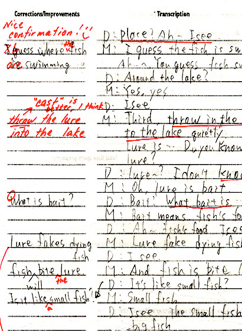 Corrections/Improvements
Transcription
Nice confirmation!!!
D: Place? Ah~ I see
I guess where the fish are swimming
M: I guess the fish is sw
Ah~ You guess, fish sw
D: Around the lake?
M: Yes, yes
D: I see
"cast" is better, I think
throw the lure into the lake
M: Third, throw in the
to the lake quietly.
lure is ~ Do you know
lure?
D: lure? I don't know
M: Oh, lure is bait
What is bait?
D: Bait? What bait is
M: Bait means fish's fo
D: Ah~ fish's food I see
lure fakes dying fish
M: Lure fake dying fish
D: I see
fish bite the lure
M: And fish is bite l
will
Is it like a small fish?
D: It's like small?
M: Small fish
D: I see the small fish
big fish